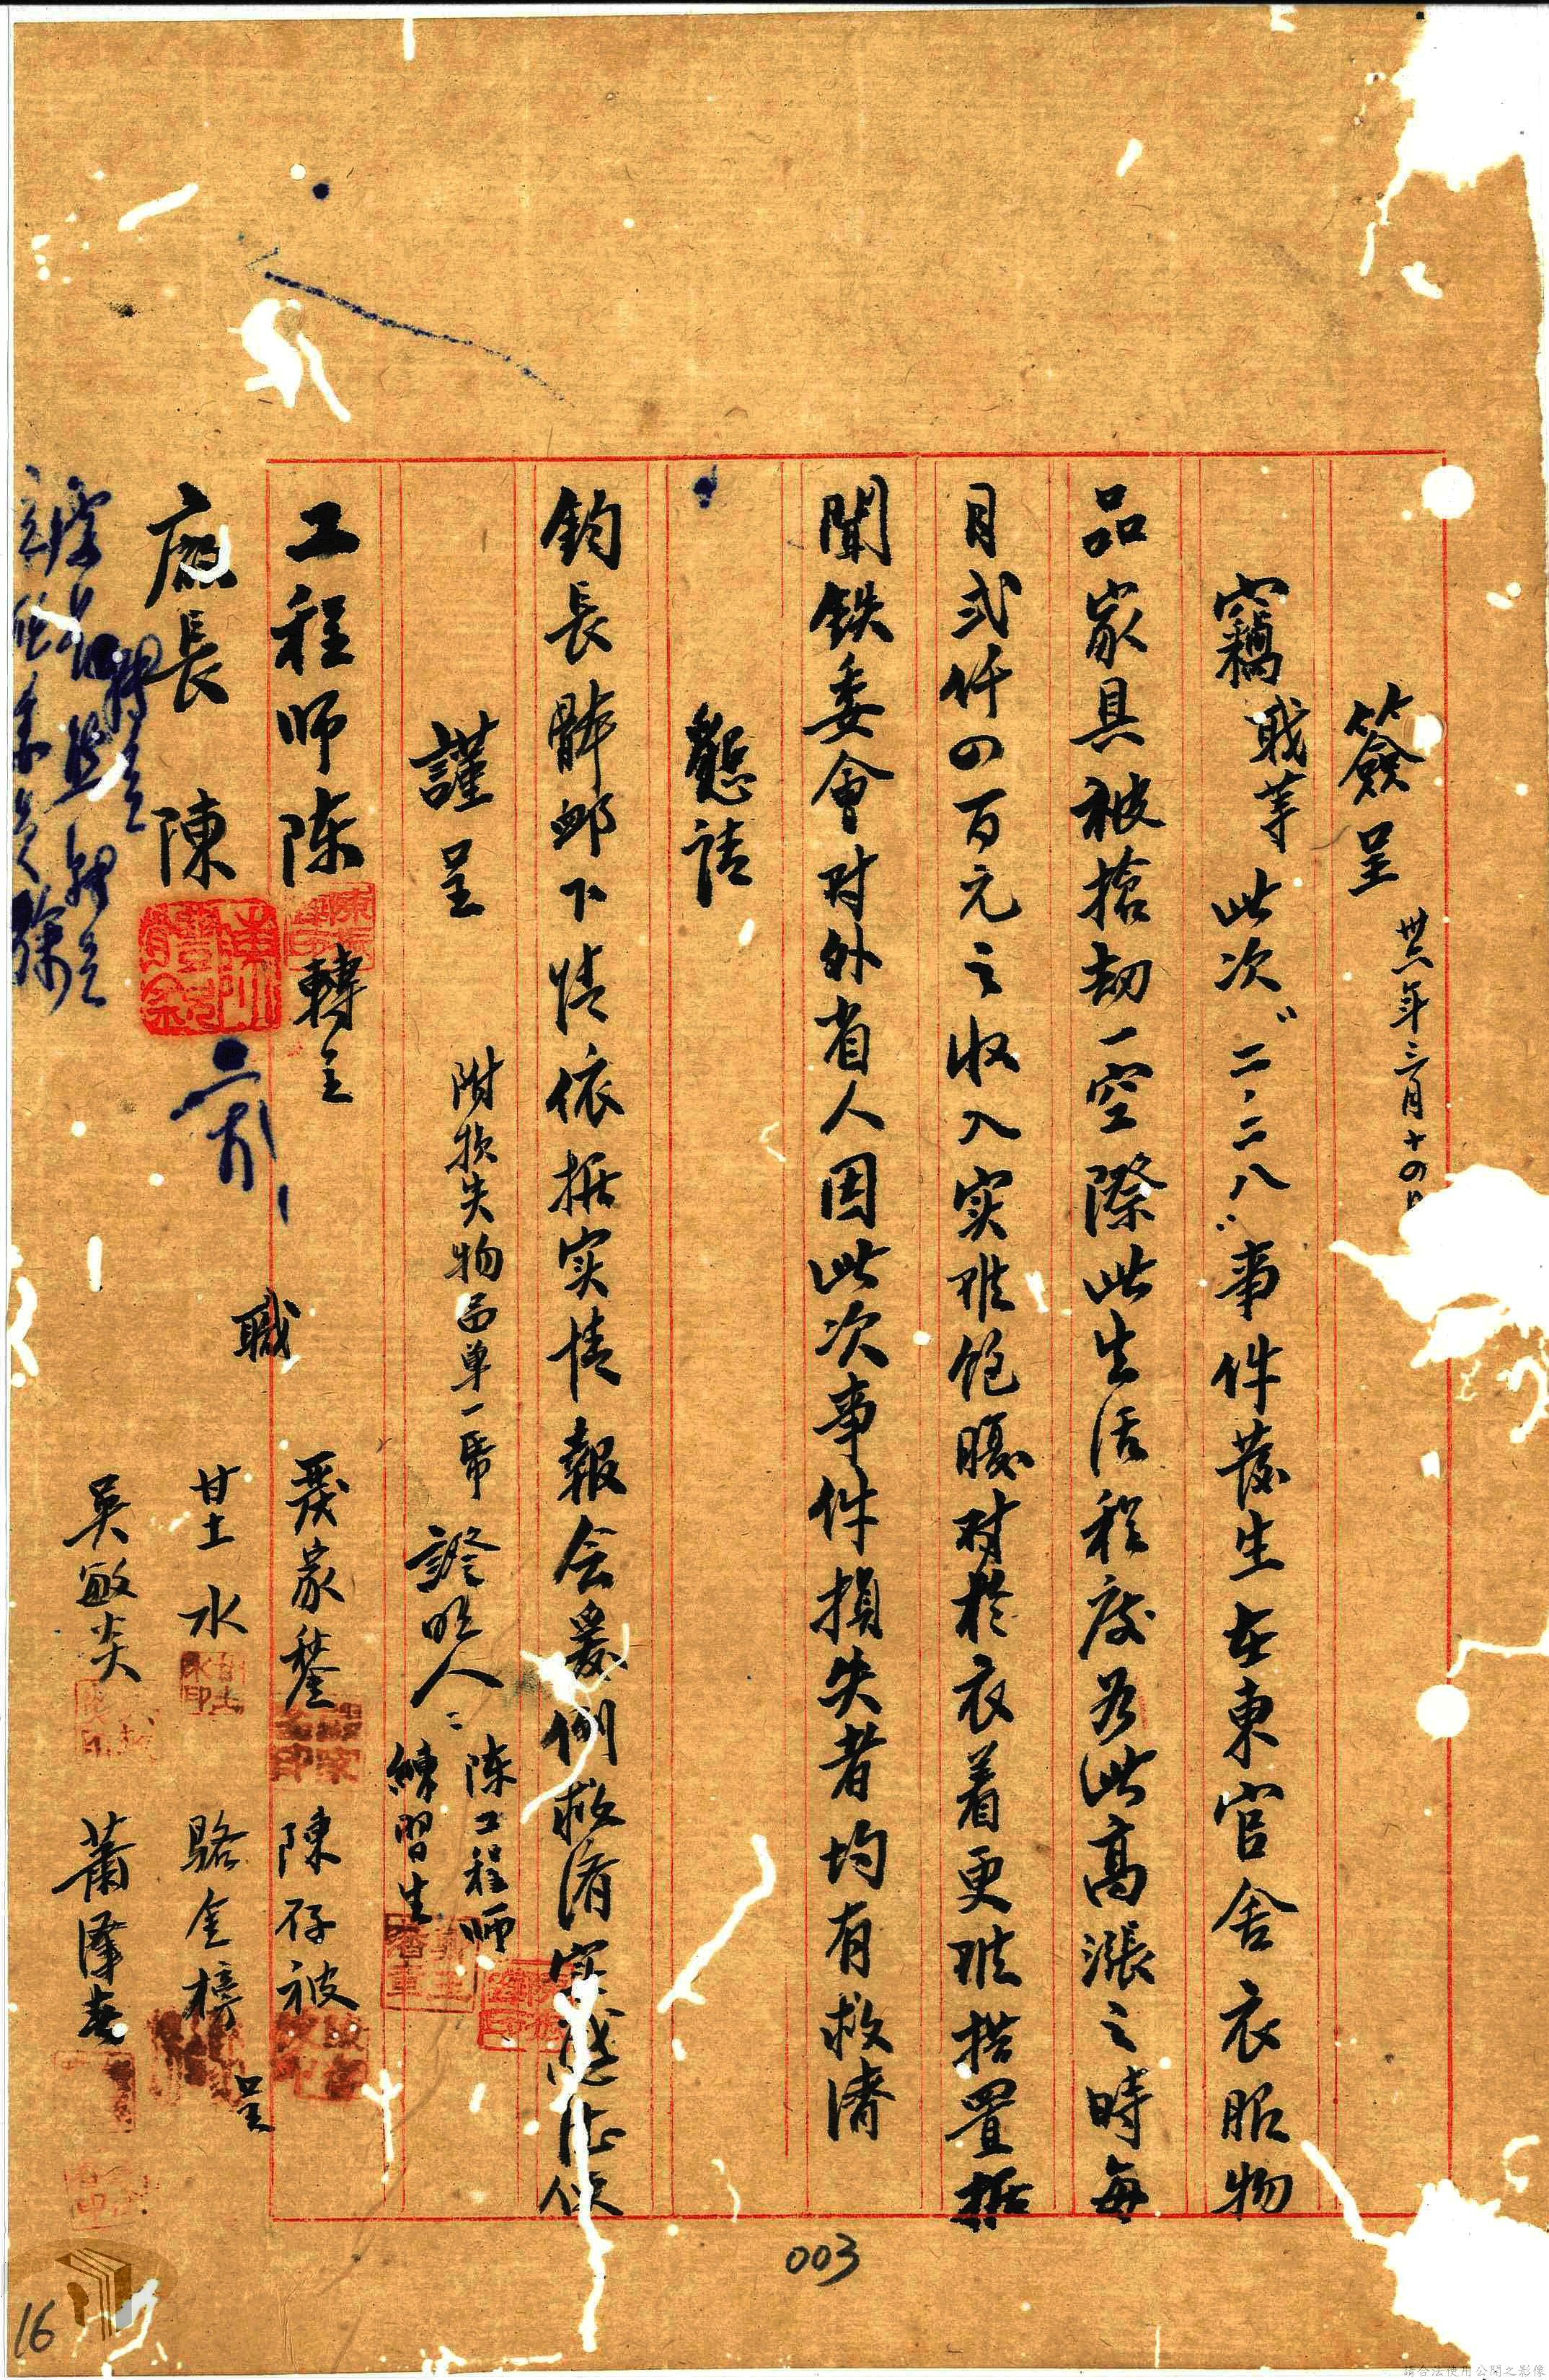 簽呈 卅六年三月十四日
竊職等此次“二·二八”事件發生在東官舍衣服物
品家具被搶劫一空際此生活程度為此高漲之時每
月弍仟四百元之收入实难飽腹对於衣着更难措置据
聞鉄委會对外省人因此次事件損失者均有救濟
懇請
鈞長體邮下情依据实情報会爰例救濟实感德便
謹呈
附損失物品单一帋 證明人：陈工程师
練習生
工程师陈 轉呈
廠長 陳
職
家鏊 陳存被
甘土水 駱金榜 呈
吳敏炎 蕭澤春
003
16
請合法使用公開之影像